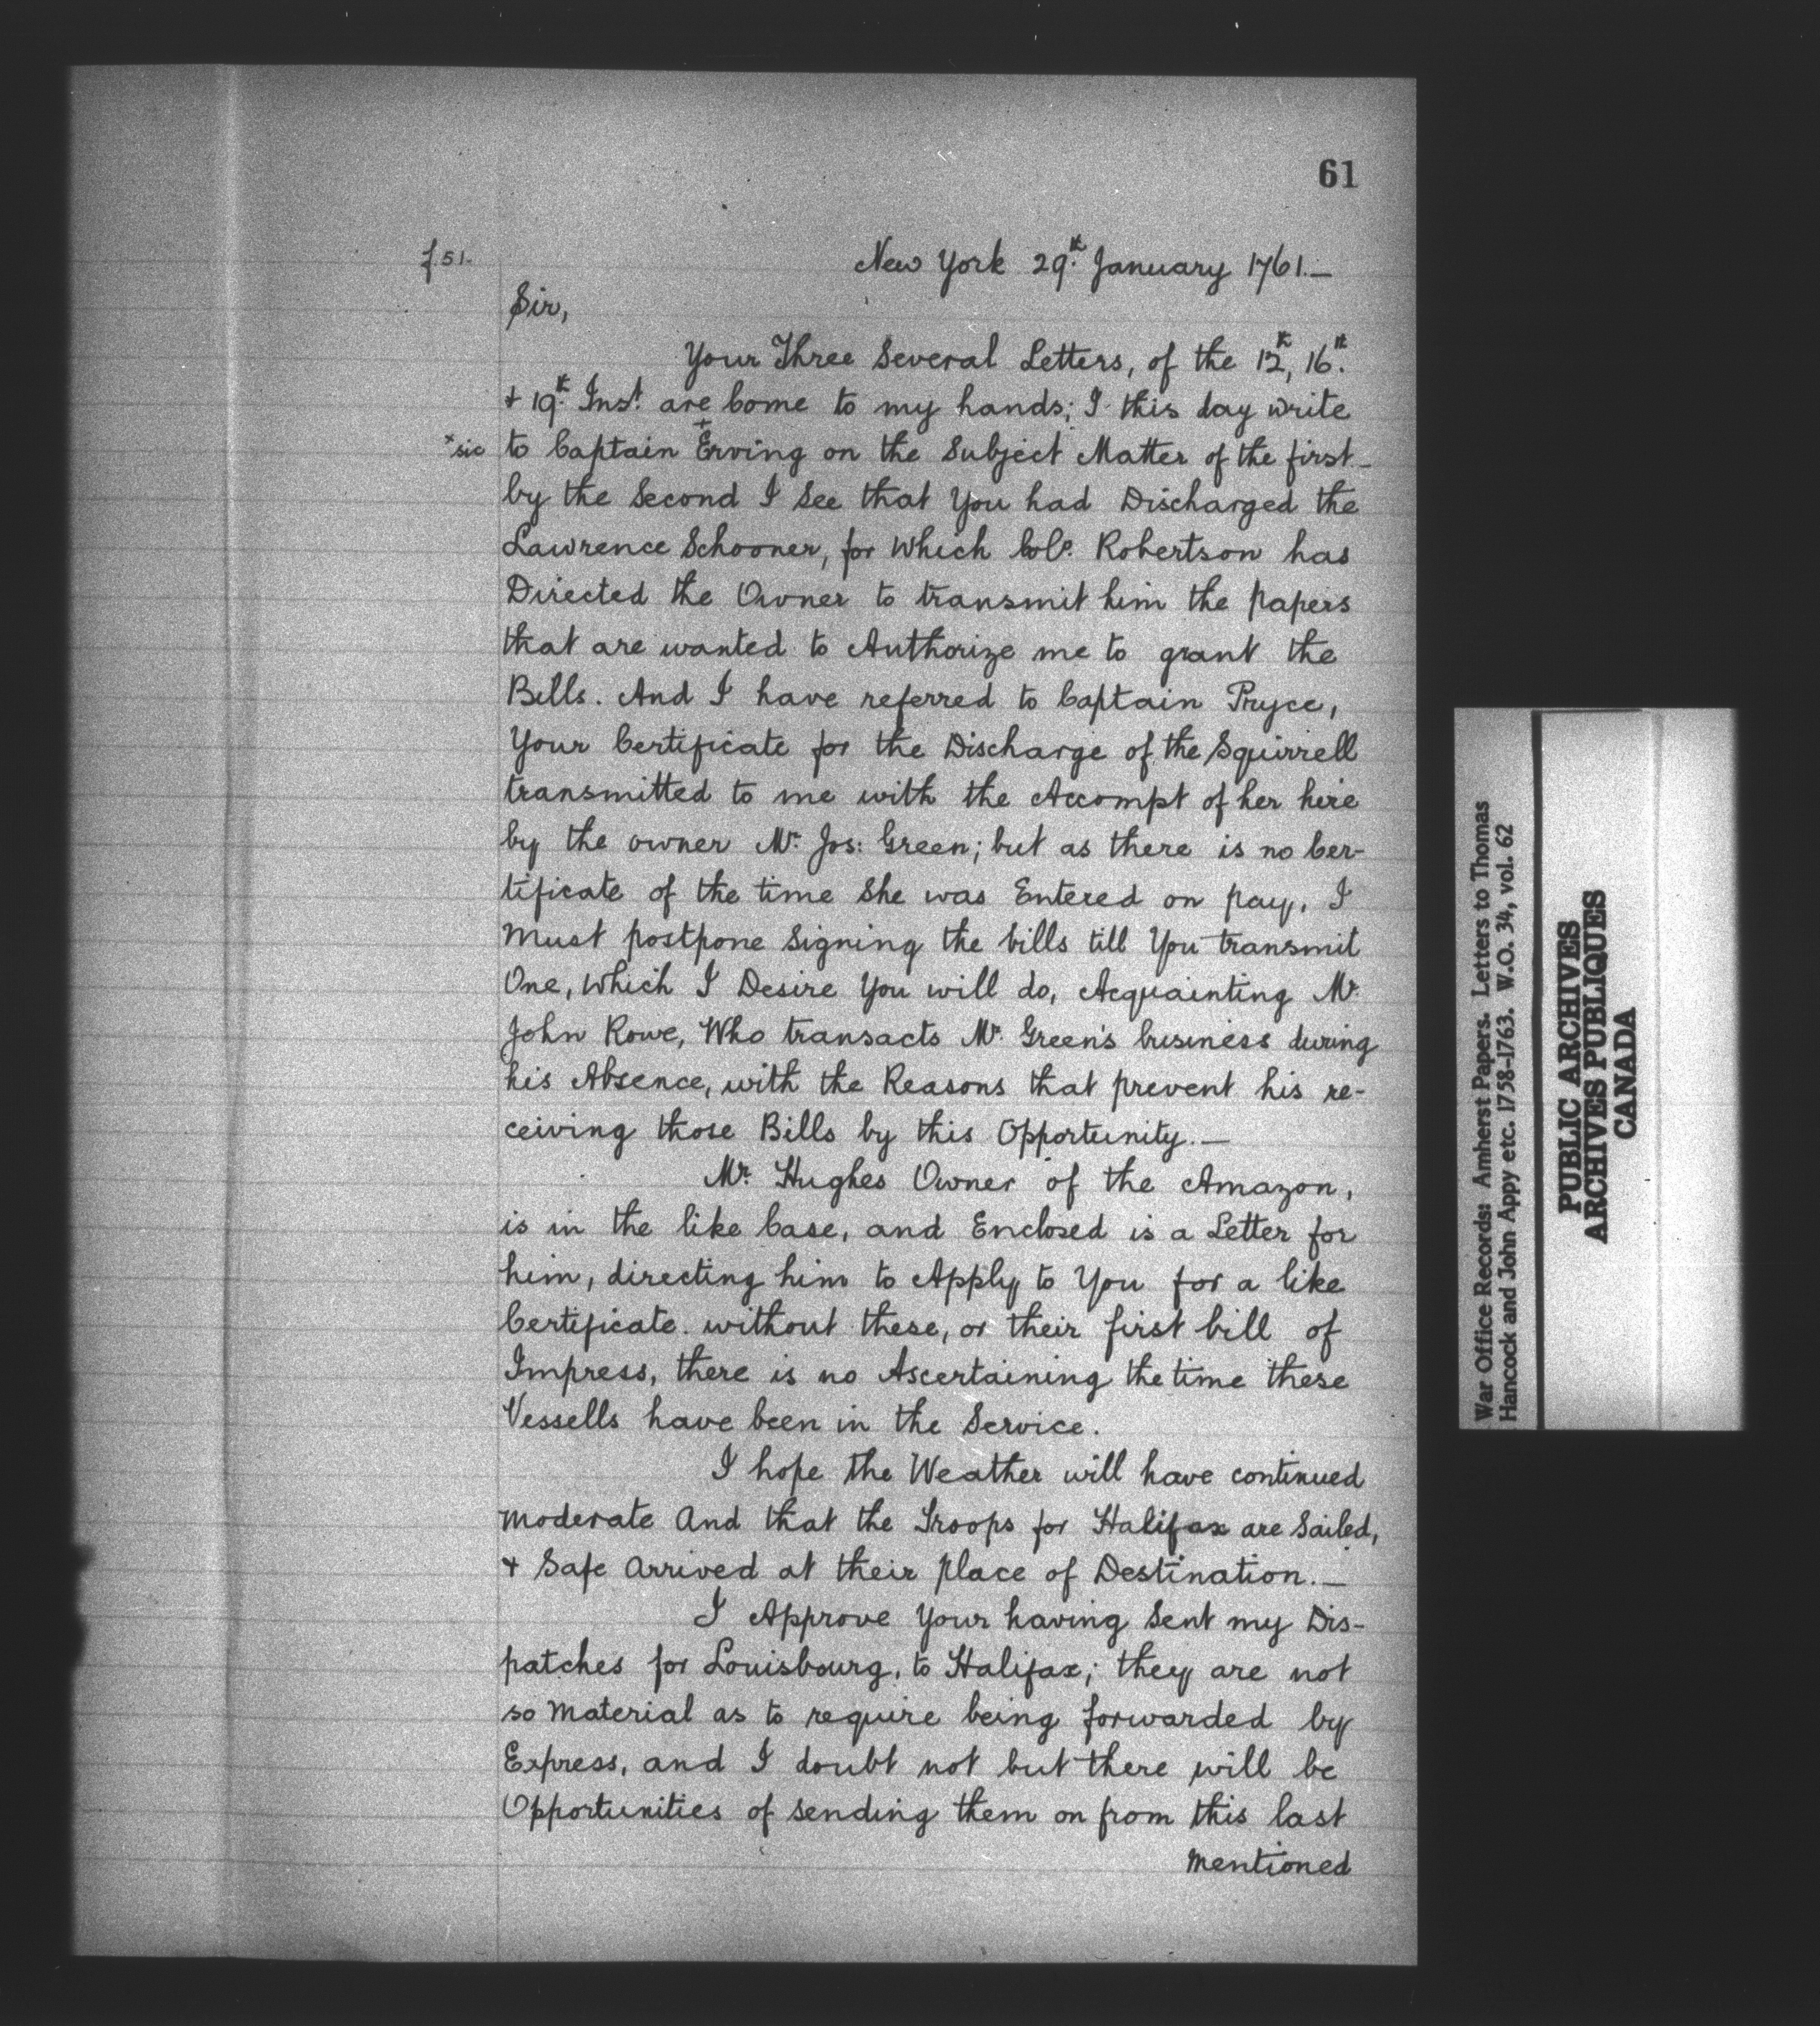 61
f.51.
New York 29th January 1761.—
Sir,
Your Three Several Letters, of the 12th, 16th.
+ 19th Inst. are Come to my hands; I this day write
*sic to Captain +Erving on the Subject Matter of the first_
by the Second I See that You had Discharged the
Lawrence Schooner, for Which Colo. Robertson has
Directed the Owner to transmit him the papers
that are wanted to Authorize me to grant the
Bills. And I have referred to Captain Pryce,
Your Certificate for the Discharge of the Squirrell
transmitted to me with the Accompt of her hire
by the owner Mr. Jos: Green; but as there is no Cer-
tificate of the time She was Entered on pay, I
Must postpone Signing the bills till You transmit
One, Which I Desire You will do, Acquainting Mr.
John Rowe, Who transacts Mr. Green's business during
his Absence, with the Reasons that prevent his re-
ceiving those Bills by this Opportunity.—
Mr. Hughes Owner of the Amazon,
is in the like Case, and Enclosed is a Letter for
him, directing him to Apply to You for a like
Certificate. without these, or their first bill of
Impress, there is no Ascertaining the time these
Vessells have been in the Service.
I hope the Weather will have continued
Moderate And that the Troops for Halifax are Sailed,
+ Safe Arrived at their place of Destination.—
I Approve Your having Sent my Dis-
patches for Louisbourg, to Halifax; they are not
so Material as to require being forwarded by
Express, and I doubt not but there will be
Opportunities of sending them on from this last
Mentioned
War Office Records: Amherst Papers. Letters to Thomas
Hancock and John Appy etc. 1758-1763. W.O. 34, vol. 62
PUBLIC ARCHIVES
ARCHIVES PUBLIQUES
CANADA